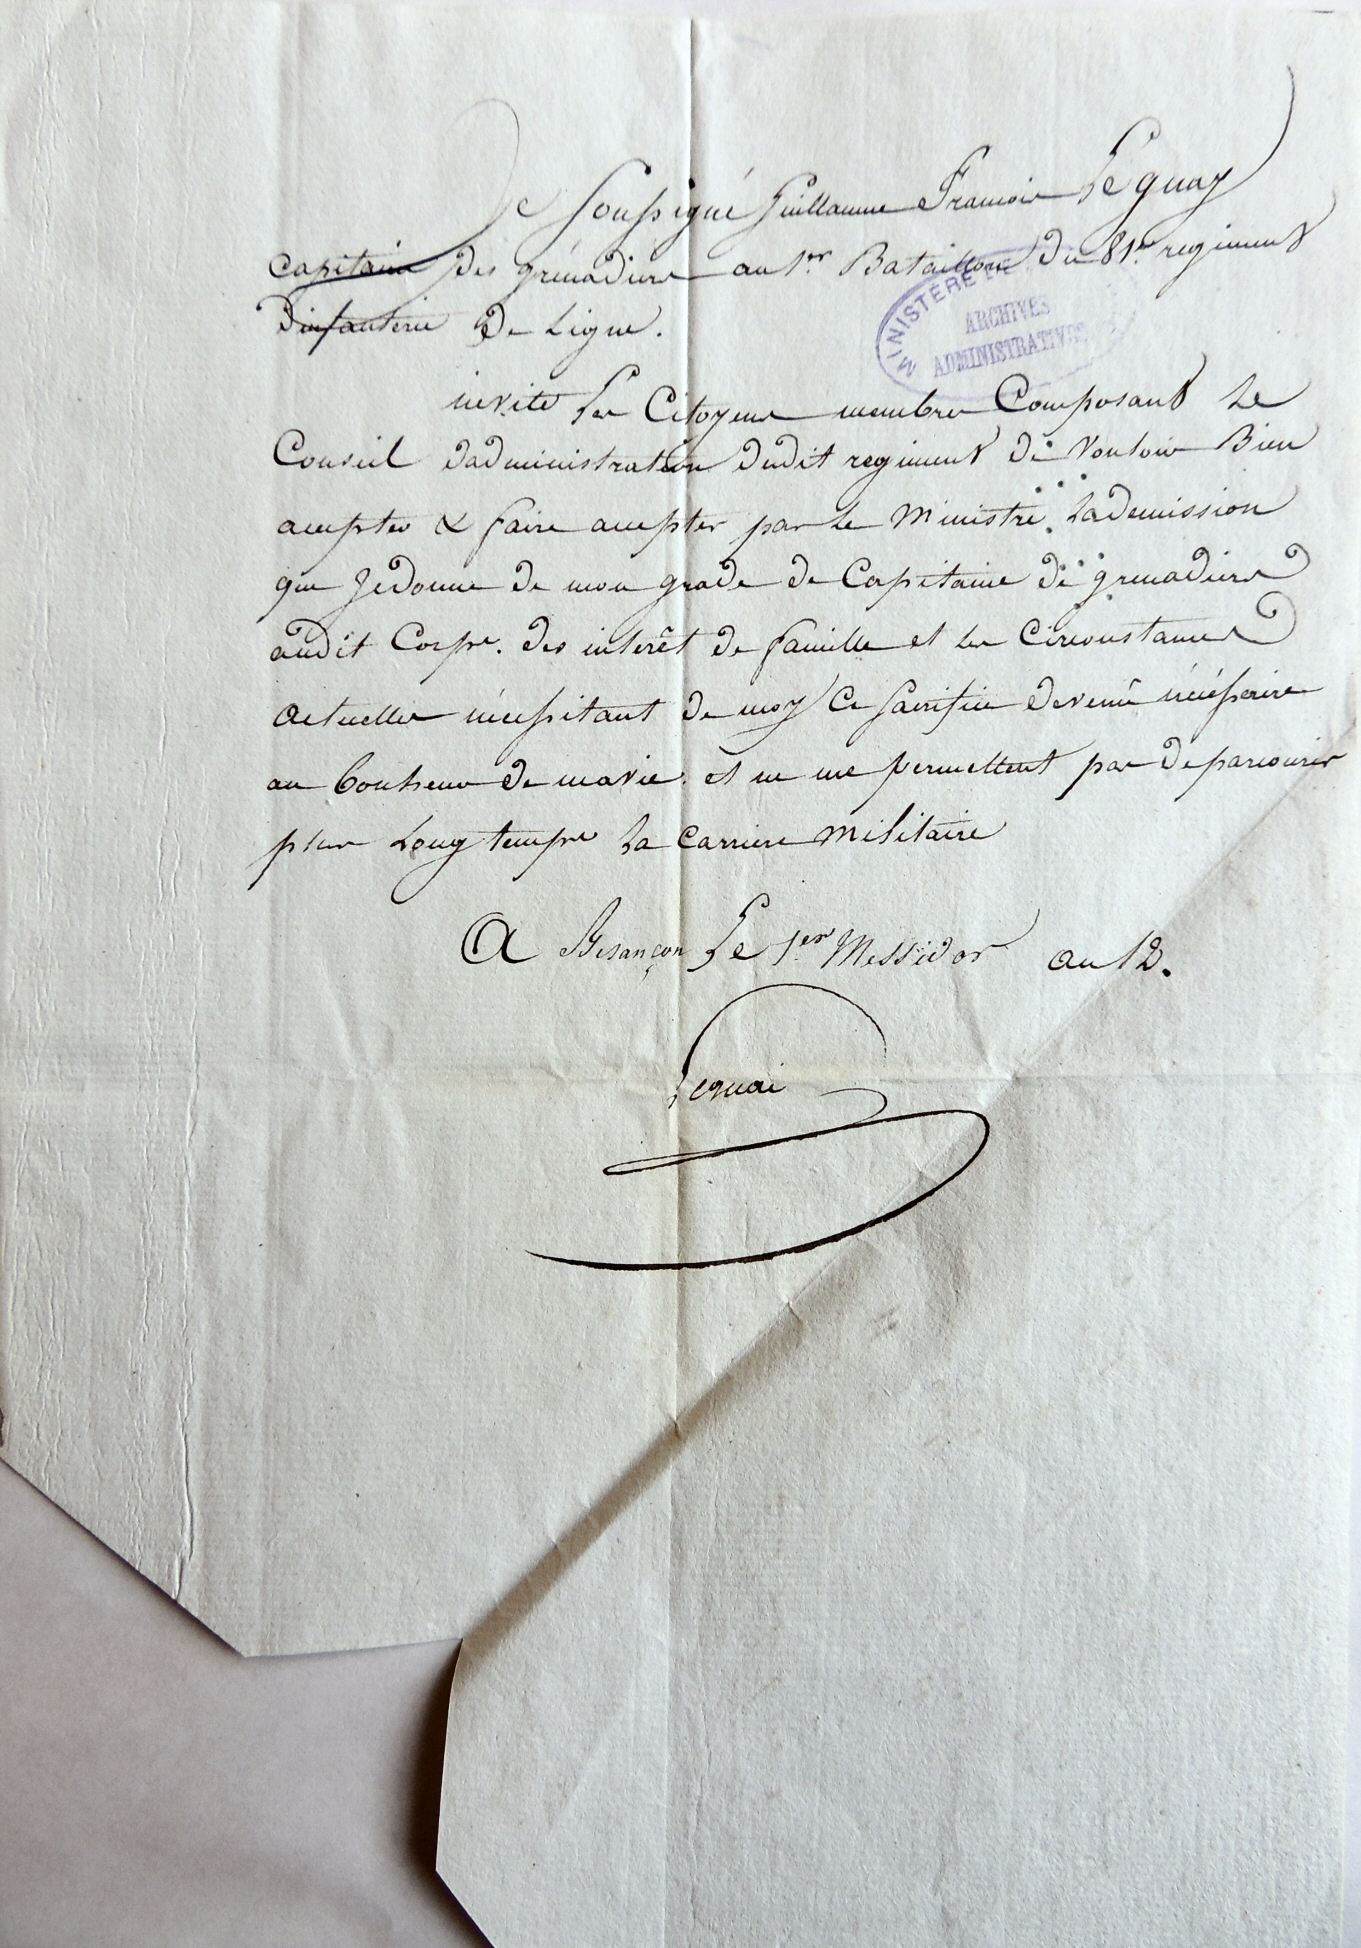 Je soussigné Guillaume François Lequay
capitaine des grénadiers au 1er Bataillon du 81e regiment
d'infanterie de Ligne.
MINISTÈRE
ARCHIVES
ADMINISTRATIVES
invite Les Citoyens membres Composant Le
Conseil dadministration dudit regiment de Vouloir Bien
accepter & faire accepter par Le Ministre Ladémission
que Jedonne de mon grade de Capitaine de grenadiers
audit Corps. des interêt de famille et les Circonstances
actuelles nécessitant de moy Ce sacrifice devenu nécéssaire
au bonheur de mavie. et ne me permettent pas deparcourir
plus Longtemps La carriere militaire
A Besançon Le 1er Messidor an 12.
Lequai